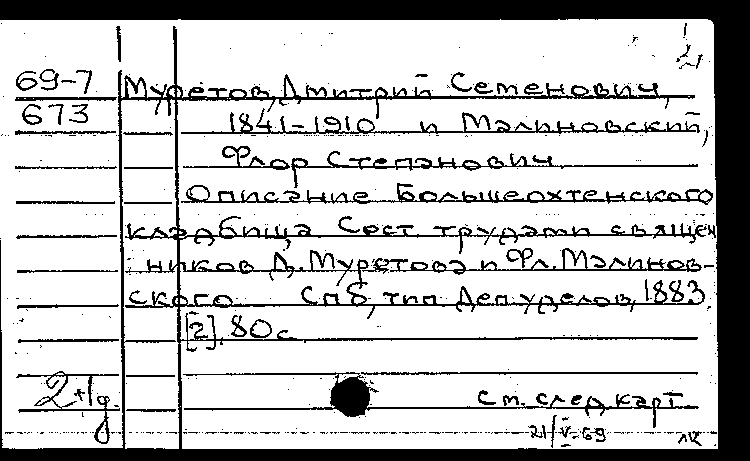 2
69-7 Муретов, Дмитрий Семенович,
673 1841-1910 и Малиновский,
Флор Степанович.
Описание Большеохтенского
кладбища Сост. трудами священ
ников Д. Муретова и Фл. Малинов-
ского Спб, тип. Деп. уделов, 1883.
[2], 80 с.
2+1д.
См. след. карт.
21/V-69 лк